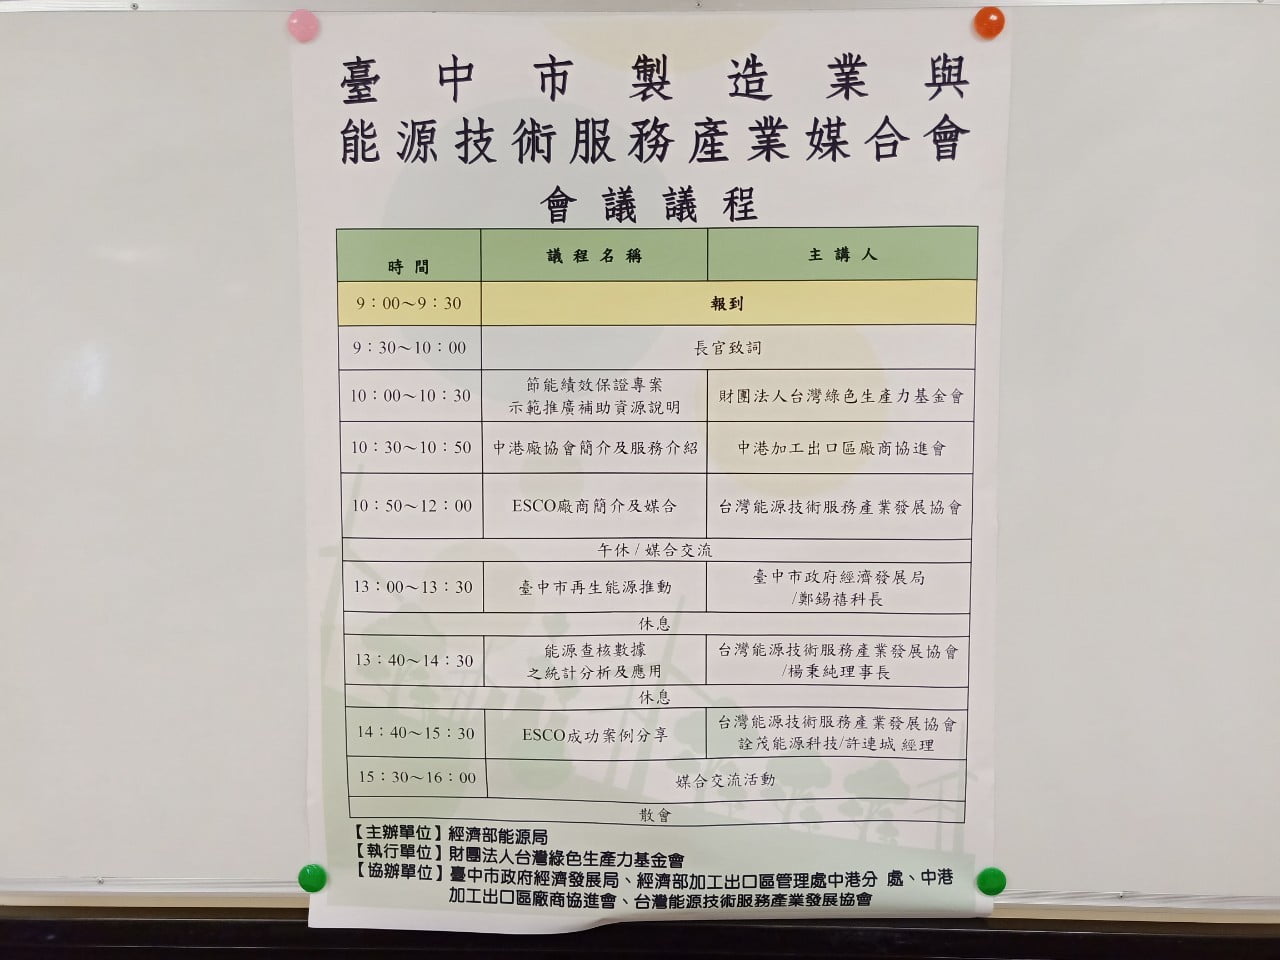 臺中市製造業與
能源技術服務產業媒合會
會議議程
時間 議程名稱 主講人
9：00～9：30 報到
9：30～10：00 長官致詞
10：00～10：30 節能績效保證專案 財團法人台灣綠色生產力基金會
示範推廣補助資源說明
10：30～10：50 中港廠協會簡介及服務介紹 中港加工出口區廠商協進會
10：50～12：00 ESCO廠商簡介及媒合 台灣能源技術服務產業發展協會
午休/媒合交流
13：00～13：30 臺中市再生能源推動 臺中市政府經濟發展局
/鄭錫禧科長
休息
13：40～14：30 能源查核數據 台灣能源技術服務產業發展協會
之統計分析及應用 /楊秉純理事長
休息
14：40～15：30 ESCO成功案例分享 台灣能源技術服務產業發展協會
詮茂能源科技/許連城 經理
15：30～16：00 媒合交流活動
散會
【主辦單位】經濟部能源局
【執行單位】財團法人台灣綠色生產力基金會
【協辦單位】臺中市政府經濟發展局、經濟部加工出口區管理處中港分 處、中港
加工出口區廠商協進會、台灣能源技術服務產業發展協會